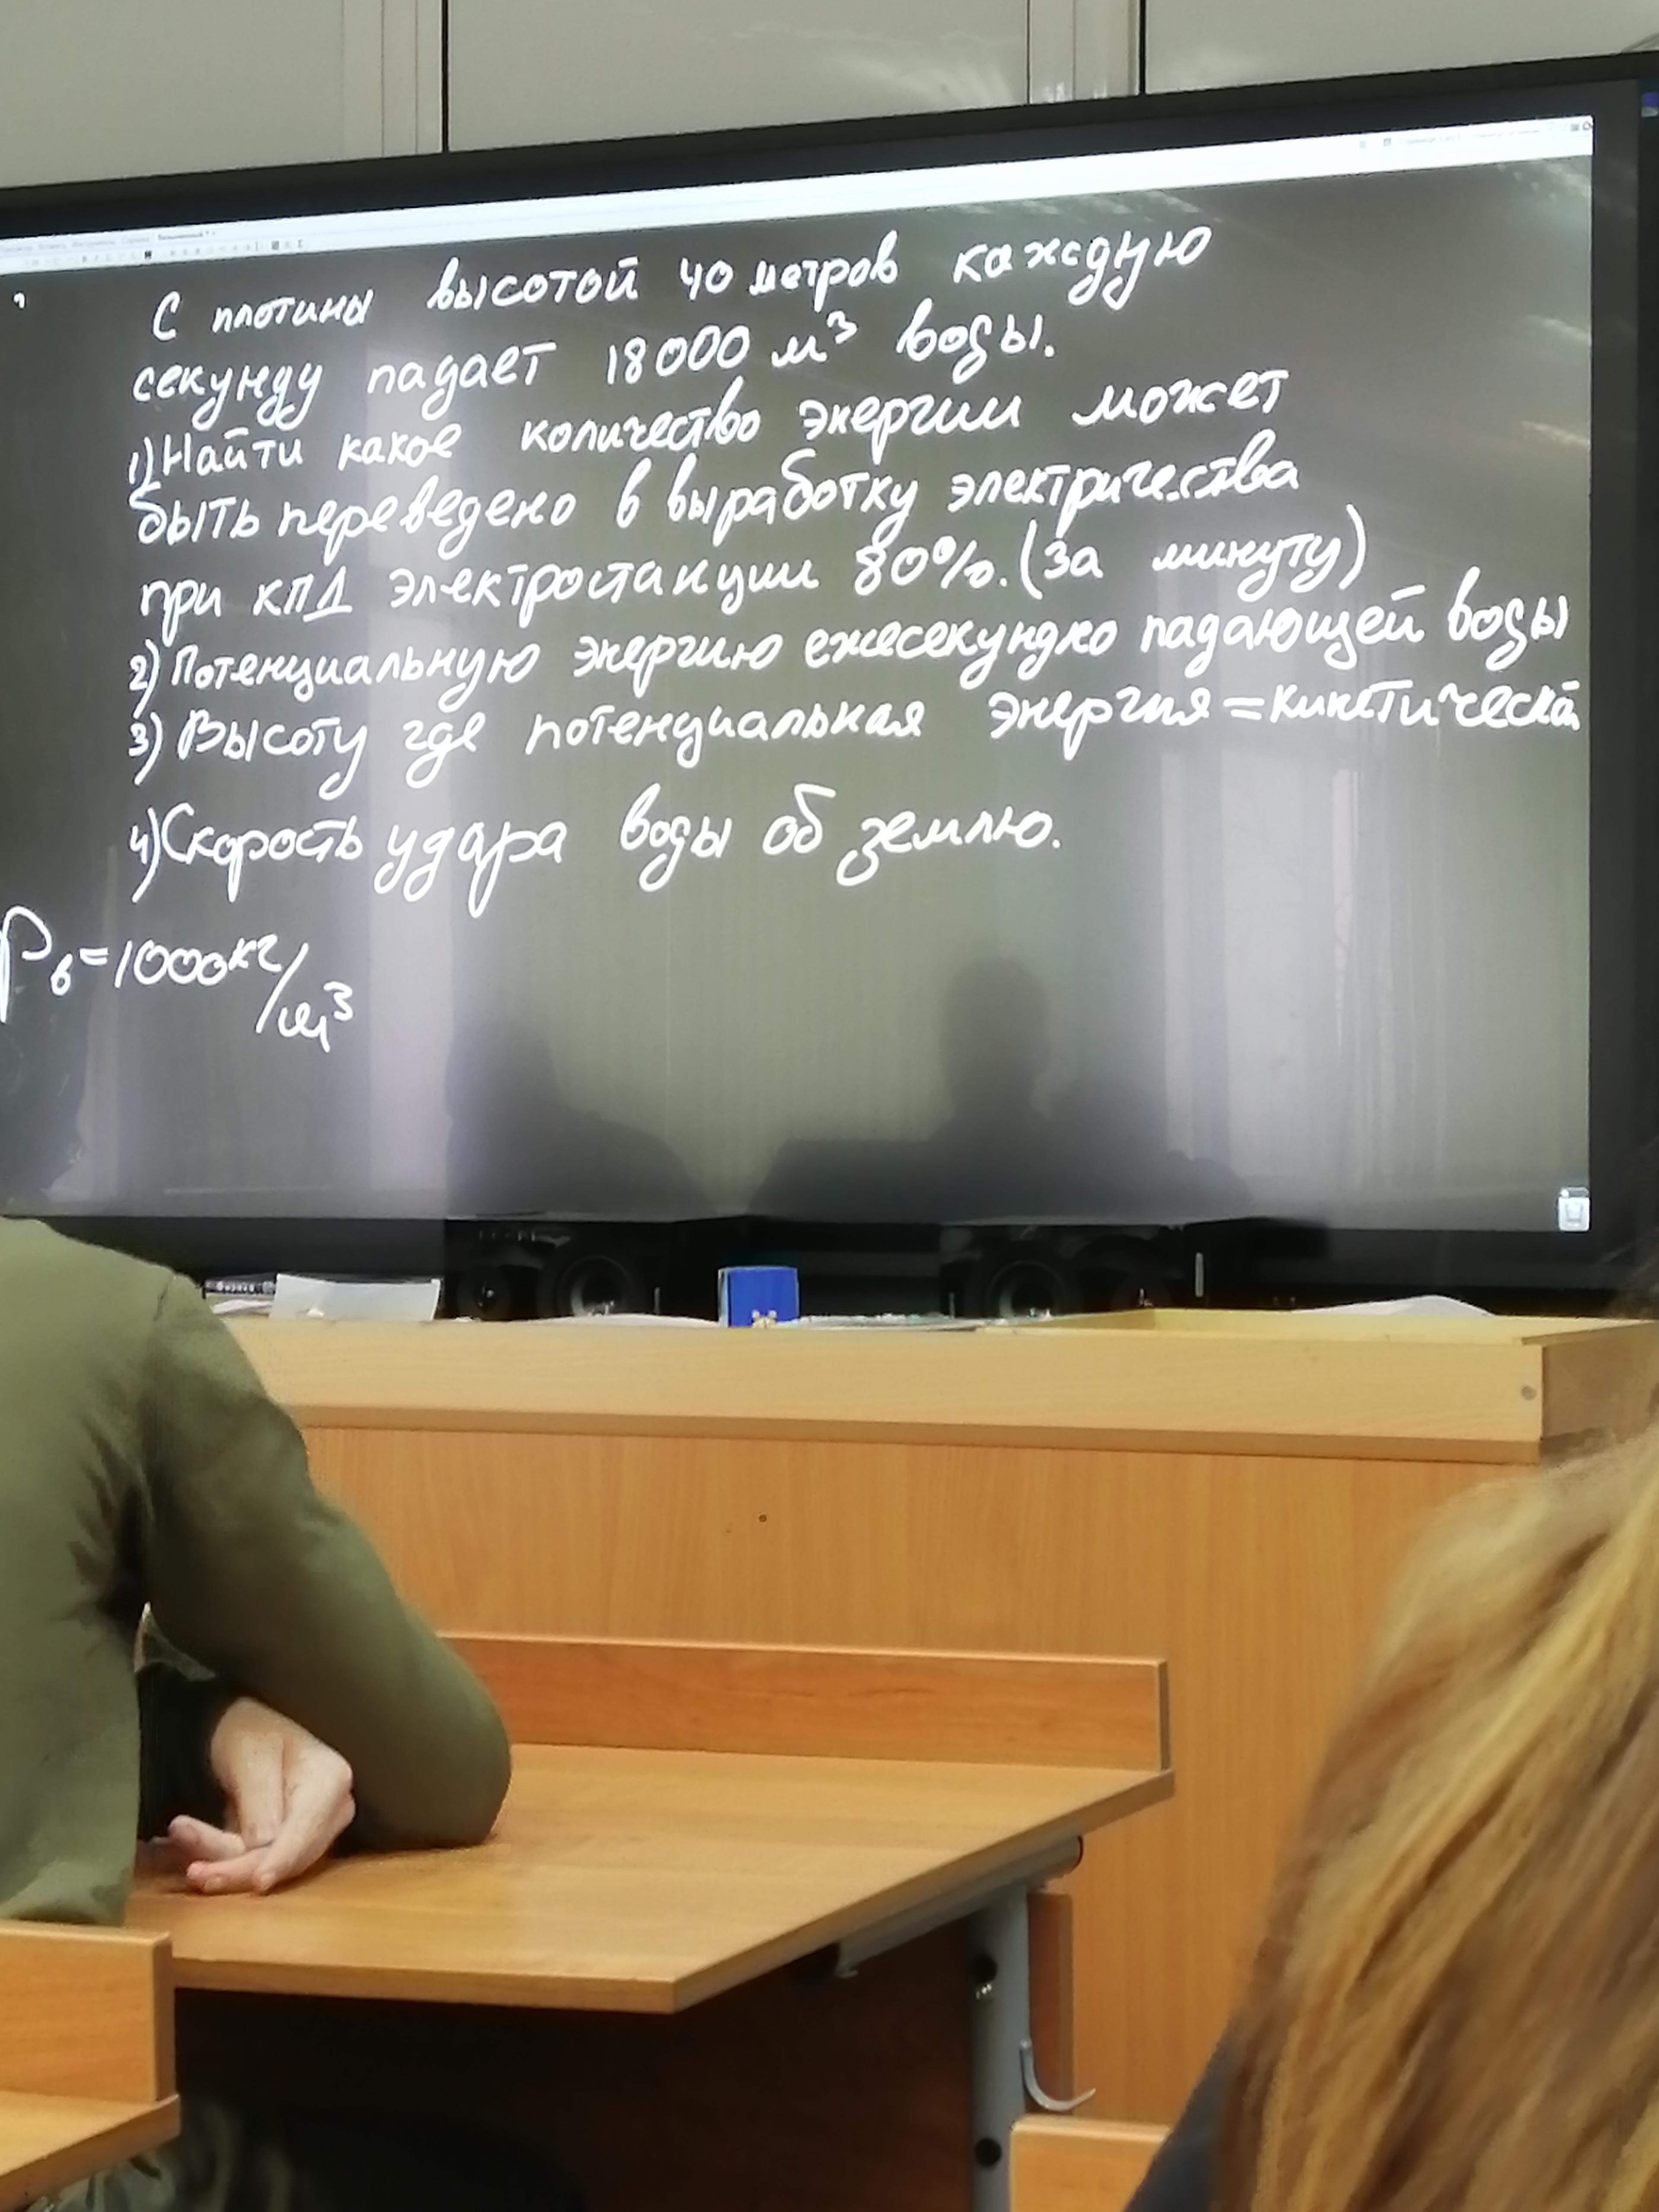 С плотины высотой 40 метров каждую
секунду падает 18000 м³ воды.
1) Найти какое количество энергии может
быть переведено в выработку электричества
при КПД электростанции 80%. (за минуту)
2) Потенциальную энергию ежесекундно падающей воды
3) Высоту где потенциальная энергия = кинетическая
4) Скорость удара воды об землю.
ρв = 1000 кг/м³